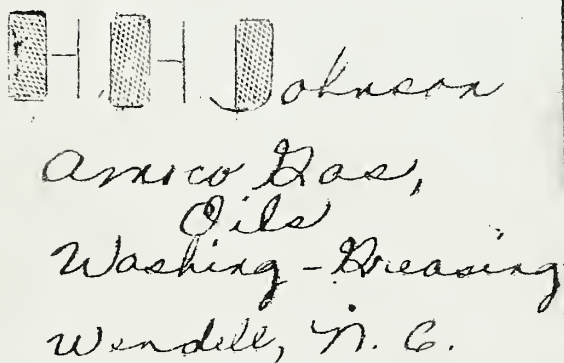 H. H. Johnson
Amoco Gas,
Oils
Washing - Greasing
Wendell, N. C.